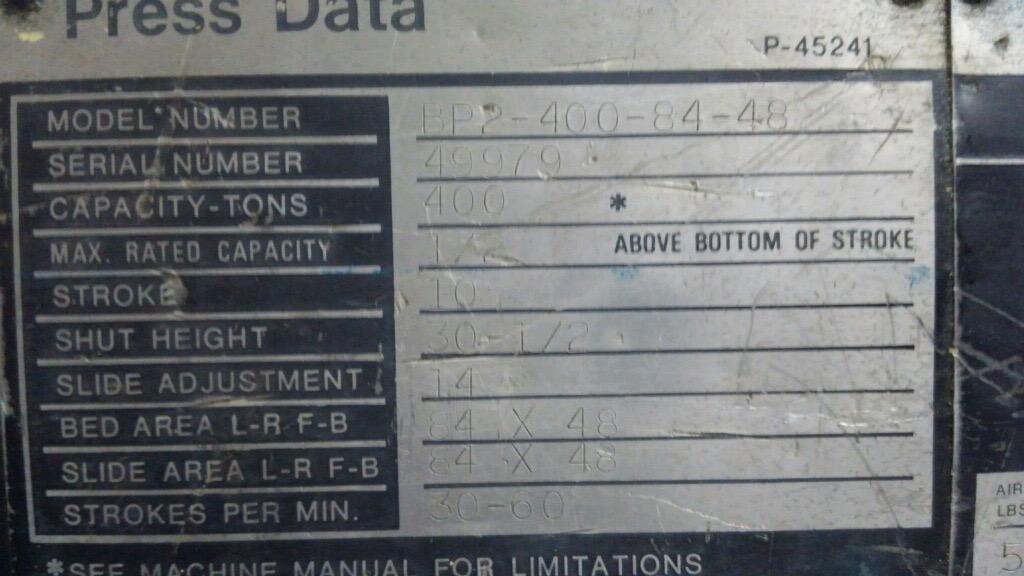 Press Data
P-45241
MODEL NUMBER BP2-400-84-48
SERIAL NUMBER 49979
CAPACITY-TONS 400 *
MAX. RATED CAPACITY 1/2 ABOVE BOTTOM OF STROKE
STROKE 10
SHUT HEIGHT 30-1/2
SLIDE ADJUSTMENT 14
BED AREA L-R F-B 84 X 48
SLIDE AREA L-R F-B 84 X 48
STROKES PER MIN. 30-60
*SEE MACHINE MANUAL FOR LIMITATIONS
AIR
LBS
5